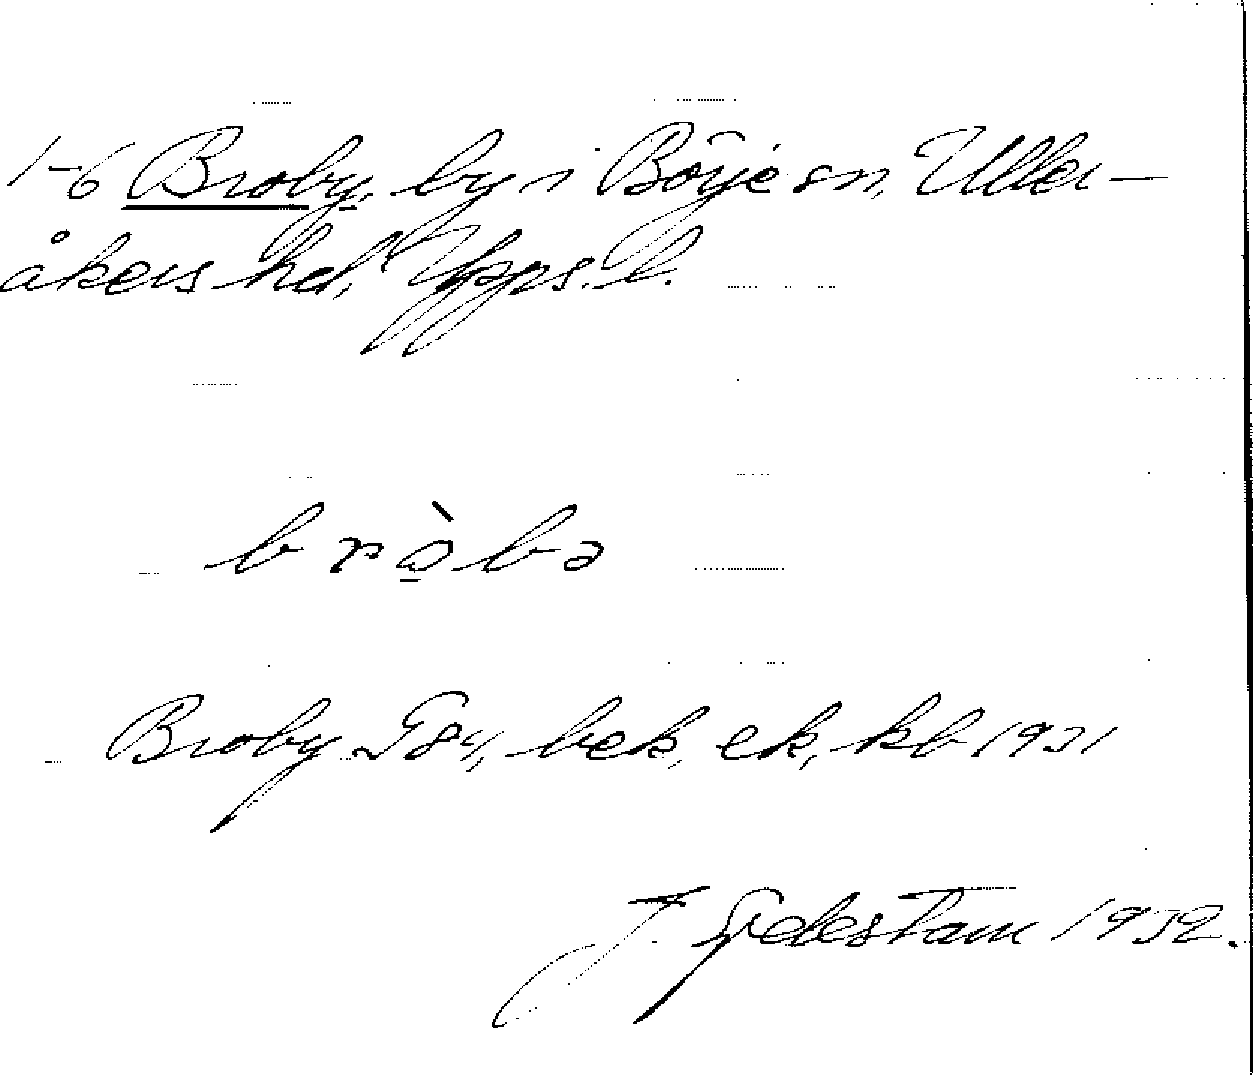 1-6 Broby, by i Börje sn, Uller-
åkers hd, Upps. l.
brò̱bə
Broby G84, bek, ek, kb 1931
J. Sjdestam 1932.